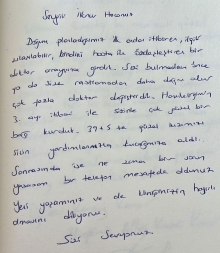 Sayın İlknur Hocamız
Doğum planladığımız ilk andan itibaren, ilgili
ulaşılabilir, kendini hasta ile özdeşleştiren bir
doktor arayışına girdik. Sizi bulmadan önce
ya da size rastlamadan daha doğru olur
çok fazla doktor değiştirdik. Hamileliğimin
3. ayı itibari ile sizinle çok güzel bir
bağ kurduk. 37+5 te güzel kızımızı
sizin yardımlarınızla kucağımıza aldık.
Sonrasında ise ne zaman bir sorun
yaşasam bir telefon mesafede oldunuz
Yeni yaşamınız ve de hayırlı
olmasını diliyoruz.
Sizi Seviyoruz